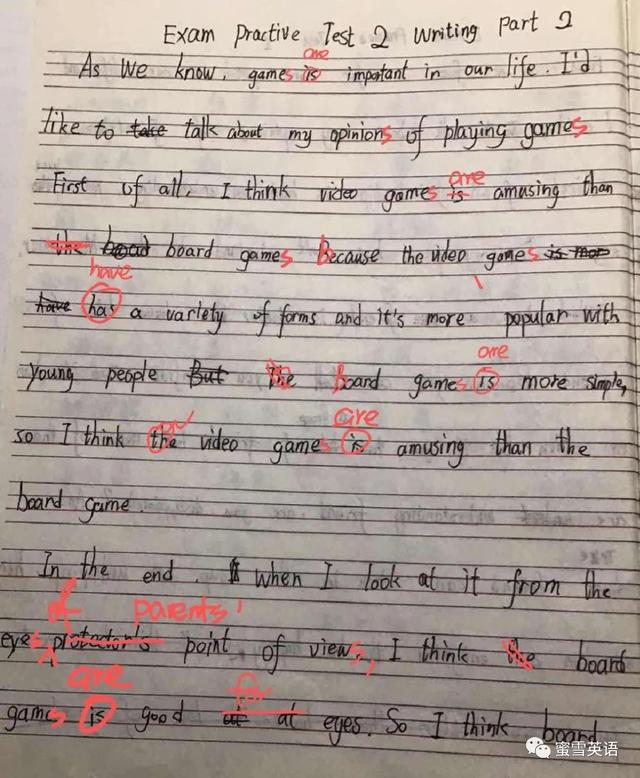 Exam Practive Test 2 Writing Part 2
are
As we know, games is important in our life. I'd
like to take talk about my opinions of playing games
are
First of all, I think video games is amusing than
the board board games Because the video games is mor
have
have has a variety of forms and it's more popular with
are
young people But the Board games is more simple,
are
so I think the video games is amusing than the
board game.
In the end. When I look at it from the
of parents'
eyes protector's point of views, I think the board
are for
games is good at at eyes. So I think board
蜜雪英语